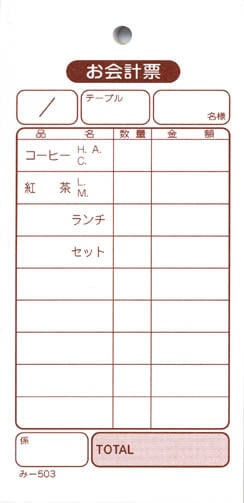 お会計票
／ テーブル 名様
品 名 数量 金 額
コーヒー H. A.
C.
紅 茶 L.
M.
ランチ
セット
係 TOTAL
みー503